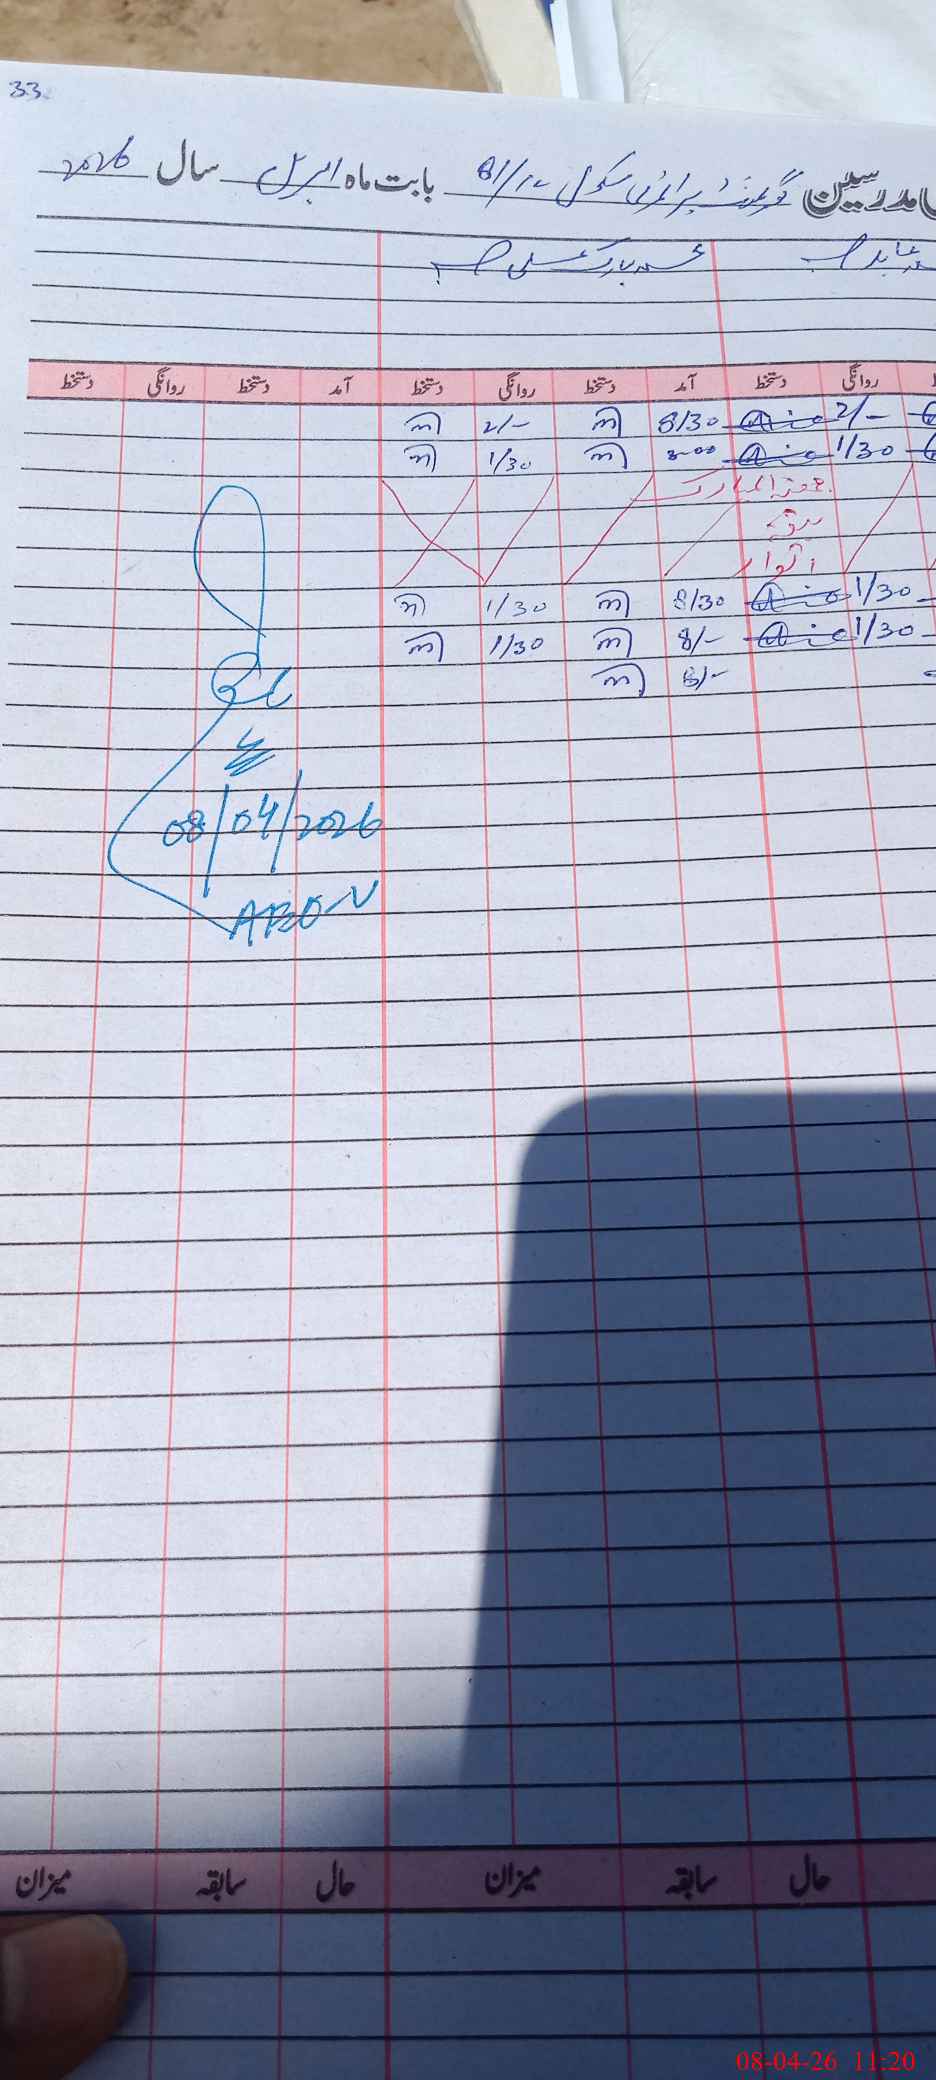 33
مدرسین گورنمنٹ پرائمری سکول 81/10 بابت ماہ اپریل سال 2026
محمد مبارک علی
دستخط روانگی دستخط آمد دستخط روانگی دستخط آمد دستخط روانگی
8/30 2/- 2/-
8-00 1/30 1/30
جمعۃ المبارک
ہفتہ
اتوار
8/30 1/30 1/30
8/- 1/30 1/30
8/-
08/04/2026
حال سابقہ میزان حال سابقہ میزان
08-04-26 11:20